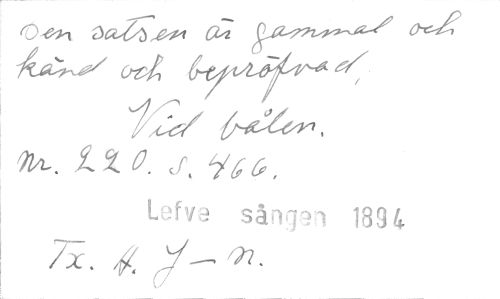 Den satsen är gammal och
känd och bepröfvad,
Vid bålen.
Nr. 220. s. 466.
Lefve sången 1894
Tx. H. J – n.